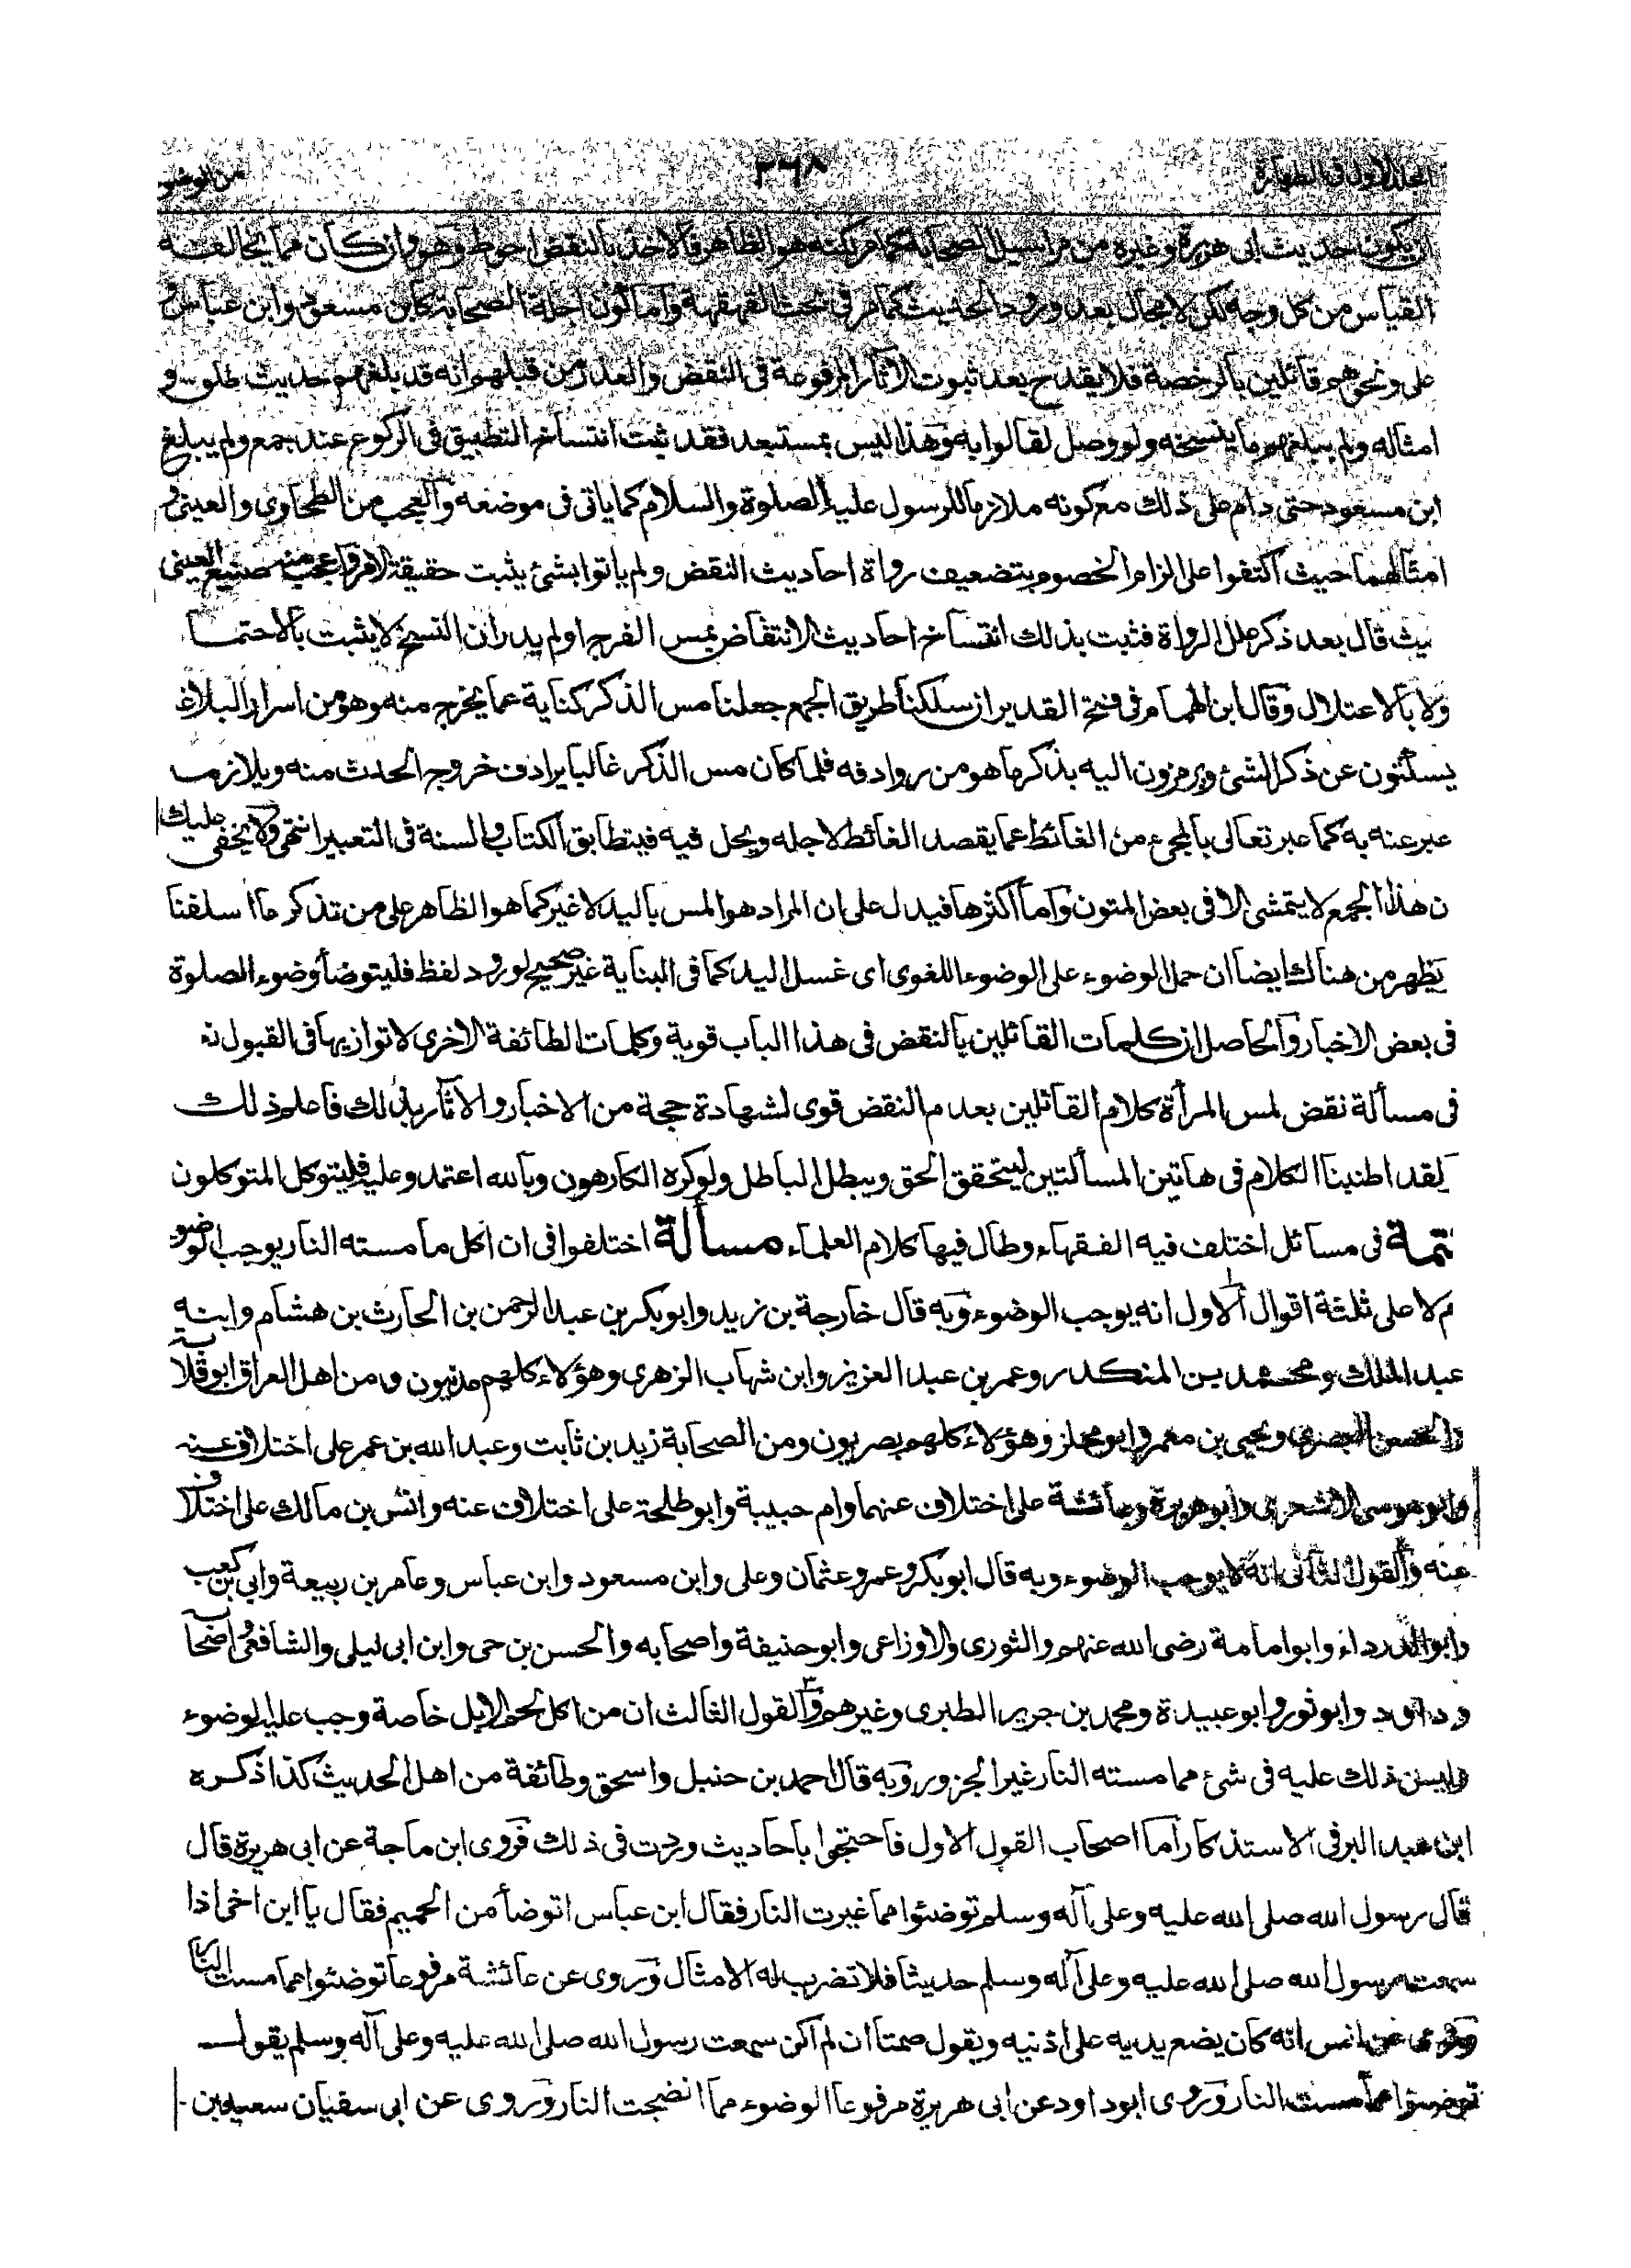 المجلد الاول فى الطهارة ٣٦٨ من الوضوء
ان يكون حديث ابى هريرة وغيره من مراسيل الصحابة كما مر لكنه هو الظاهر فالاخذ بالنقض احوط وهو وان كان مما يخالفه
القياس من كل وجه لكن لا مجال بعد ورود الحديث كما مر فى بحث القهقهة واما كون اجلة الصحابة كابن مسعود وابن عباس و
على ونحوهم قائلين بالرخصة فلا يقدح بعد ثبوت الآثار المرفوعة فى النقض والعذر من قبلهم انه قد بلغهم حديث طلق و
امثاله ولم يبلغهم ما ينسخه ولو وصل لقالوا به وهذا ليس بمستبعد فقد ثبت انتساخ التطبيق فى الركوع عند جمع ولم يبلغ
ابن مسعود حتى دام على ذلك مع كونه ملازما للرسول عليه الصلوة والسلام كما ياتى فى موضعه والعجب من الطحاوى والعينى و
امثالهما حيث اكتفوا على الزام الخصوم بتضعيف رواة احاديث النقض ولم ياتوا بشئ يثبت حقيقة الامر واعجب منه صنيع العينى
يث قال بعد ذكر علل الرواة فثبت بذلك انتساخ احاديث الانتقاض بمس الفرج اولم يدر ان النسخ لا يثبت بالاحتمـا
ولا بالاعتلال وقال ابن الهمام فى فتح القدير ان سلكنا طريق الجمع جعلنا مس الذكر كناية عما يخرج منه وهو من اسرار البلاغ
يسكتون عن ذكر الشئ ويرمزون اليه بذكر ما هو من روادفه فلما كان مس الذكر غالبا يرادف خروج الحدث منه ويلازمه
عبر عنه به كما عبر تعالى بالمجئ من الغائط عما يقصد الغائط لاجله ويحل فيه فيتطابق الكتاب والسنة فى التعبير انتهى ولا يخفى عليك
ن هذا الجمع لا يتمشى الا فى بعض المتون واما اكثرها فيدل على ان المراد هو المس باليد لا غير كما هو الظاهر على من تذكر ما اسلفنا
يظهر من هنالك ايضا ان حمل الوضوء على الوضوء اللغوى اى غسل اليد كما فى البناية غير صحيح لورود لفظ فليتوضأ وضوء الصلوة
فى بعض الاخبار والحاصل ان كلمات القائلين بالنقض فى هذا الباب قوية وكلمات الطائفة الاخرى لا توازيها فى القبول نه
فى مسألة نقض لمس المرأة كلام القائلين بعدم النقض قوى لشهادة جحة من الاخبار والآثار بذلك فاعلم ذلك
لقد اطنبنا الكلام فى هاتين المسألتين ليتحقق الحق ويبطل الباطل ولو كره الكارهون وبالله اعتمد وعليه فليتوكل المتوكلون
تتمة فى مسائل اختلف فيه الفقهاء وطال فيها كلام العلماء مسألة اختلفوا فى ان اكل ما مسته النار يوجب الوضوء
م لا على ثلثة اقوال الاول انه يوجب الوضوء وبه قال خارجة بن زيد وابو بكر بن عبد الرحمن بن الحارث بن هشام وابنه
عبد الملك ومحمد بن المنكدر وعمر بن عبد العزيز وابن شهاب الزهرى وهؤلاء كلهم مدنيون ومن اهل العراق ابو قلابة
والحسن البصرى ويحيى بن معمر وابو مجلز وهؤلاء كلهم بصريون ومن الصحابة زيد بن ثابت وعبد الله بن عمر على اختلاف عنه
وابو موسى الاشعرى وابو هريرة وعائشة على اختلاف عنهما وام حبيبة وابو طلحة على اختلاف عنه وانس بن مالك على اختلاف
عنه والقول الثانى انه لا يوجب الوضوء وبه قال ابو بكر وعمر وعثمان وعلى وابن مسعود وابن عباس وعامر بن ربيعة وابى بن كعب
وابو الدرداء وابو امامة رضى الله عنهم والثورى والاوزاعى وابو حنيفة واصحابه والحسن بن حى وابن ابى ليلى والشافعى واصحابه
و داود وابو ثور وابو عبيدة ومحمد بن جرير الطبرى وغيرهم والقول الثالث ان من اكل لحم الابل خاصة وجب عليه الوضوء
وليس ذلك عليه فى شئ مما مسته النار غير الجزور وبه قال احمد بن حنبل واسحق وطائفة من اهل الحديث كذا ذكره
ابن عبد البر فى الاستذكار اما اصحاب القول الاول فاحتجوا باحاديث وردت فى ذلك فروى ابن ماجة عن ابى هريرة قال
قال رسول الله صلى الله عليه وعلى آله وسلم توضئوا مما غيرت النار فقال ابن عباس اتوضأ من الحميم فقال يا ابن اخى اذا
سمعت رسول الله صلى الله عليه وعلى آله وسلم حديثا فلا تضرب له الامثال وروى عن عائشة مرفوعا توضئوا مما مست النار
وروى عن انس انه كان يضع يديه على اذنيه ويقول صمتا ان لم اكن سمعت رسول الله صلى الله عليه وعلى آله وسلم يقول
توضئوا مما مست النار وروى ابو داود عن ابى هريرة مرفوعا الوضوء مما انضجت النار وروى عن ابى سفيان سعيد بن